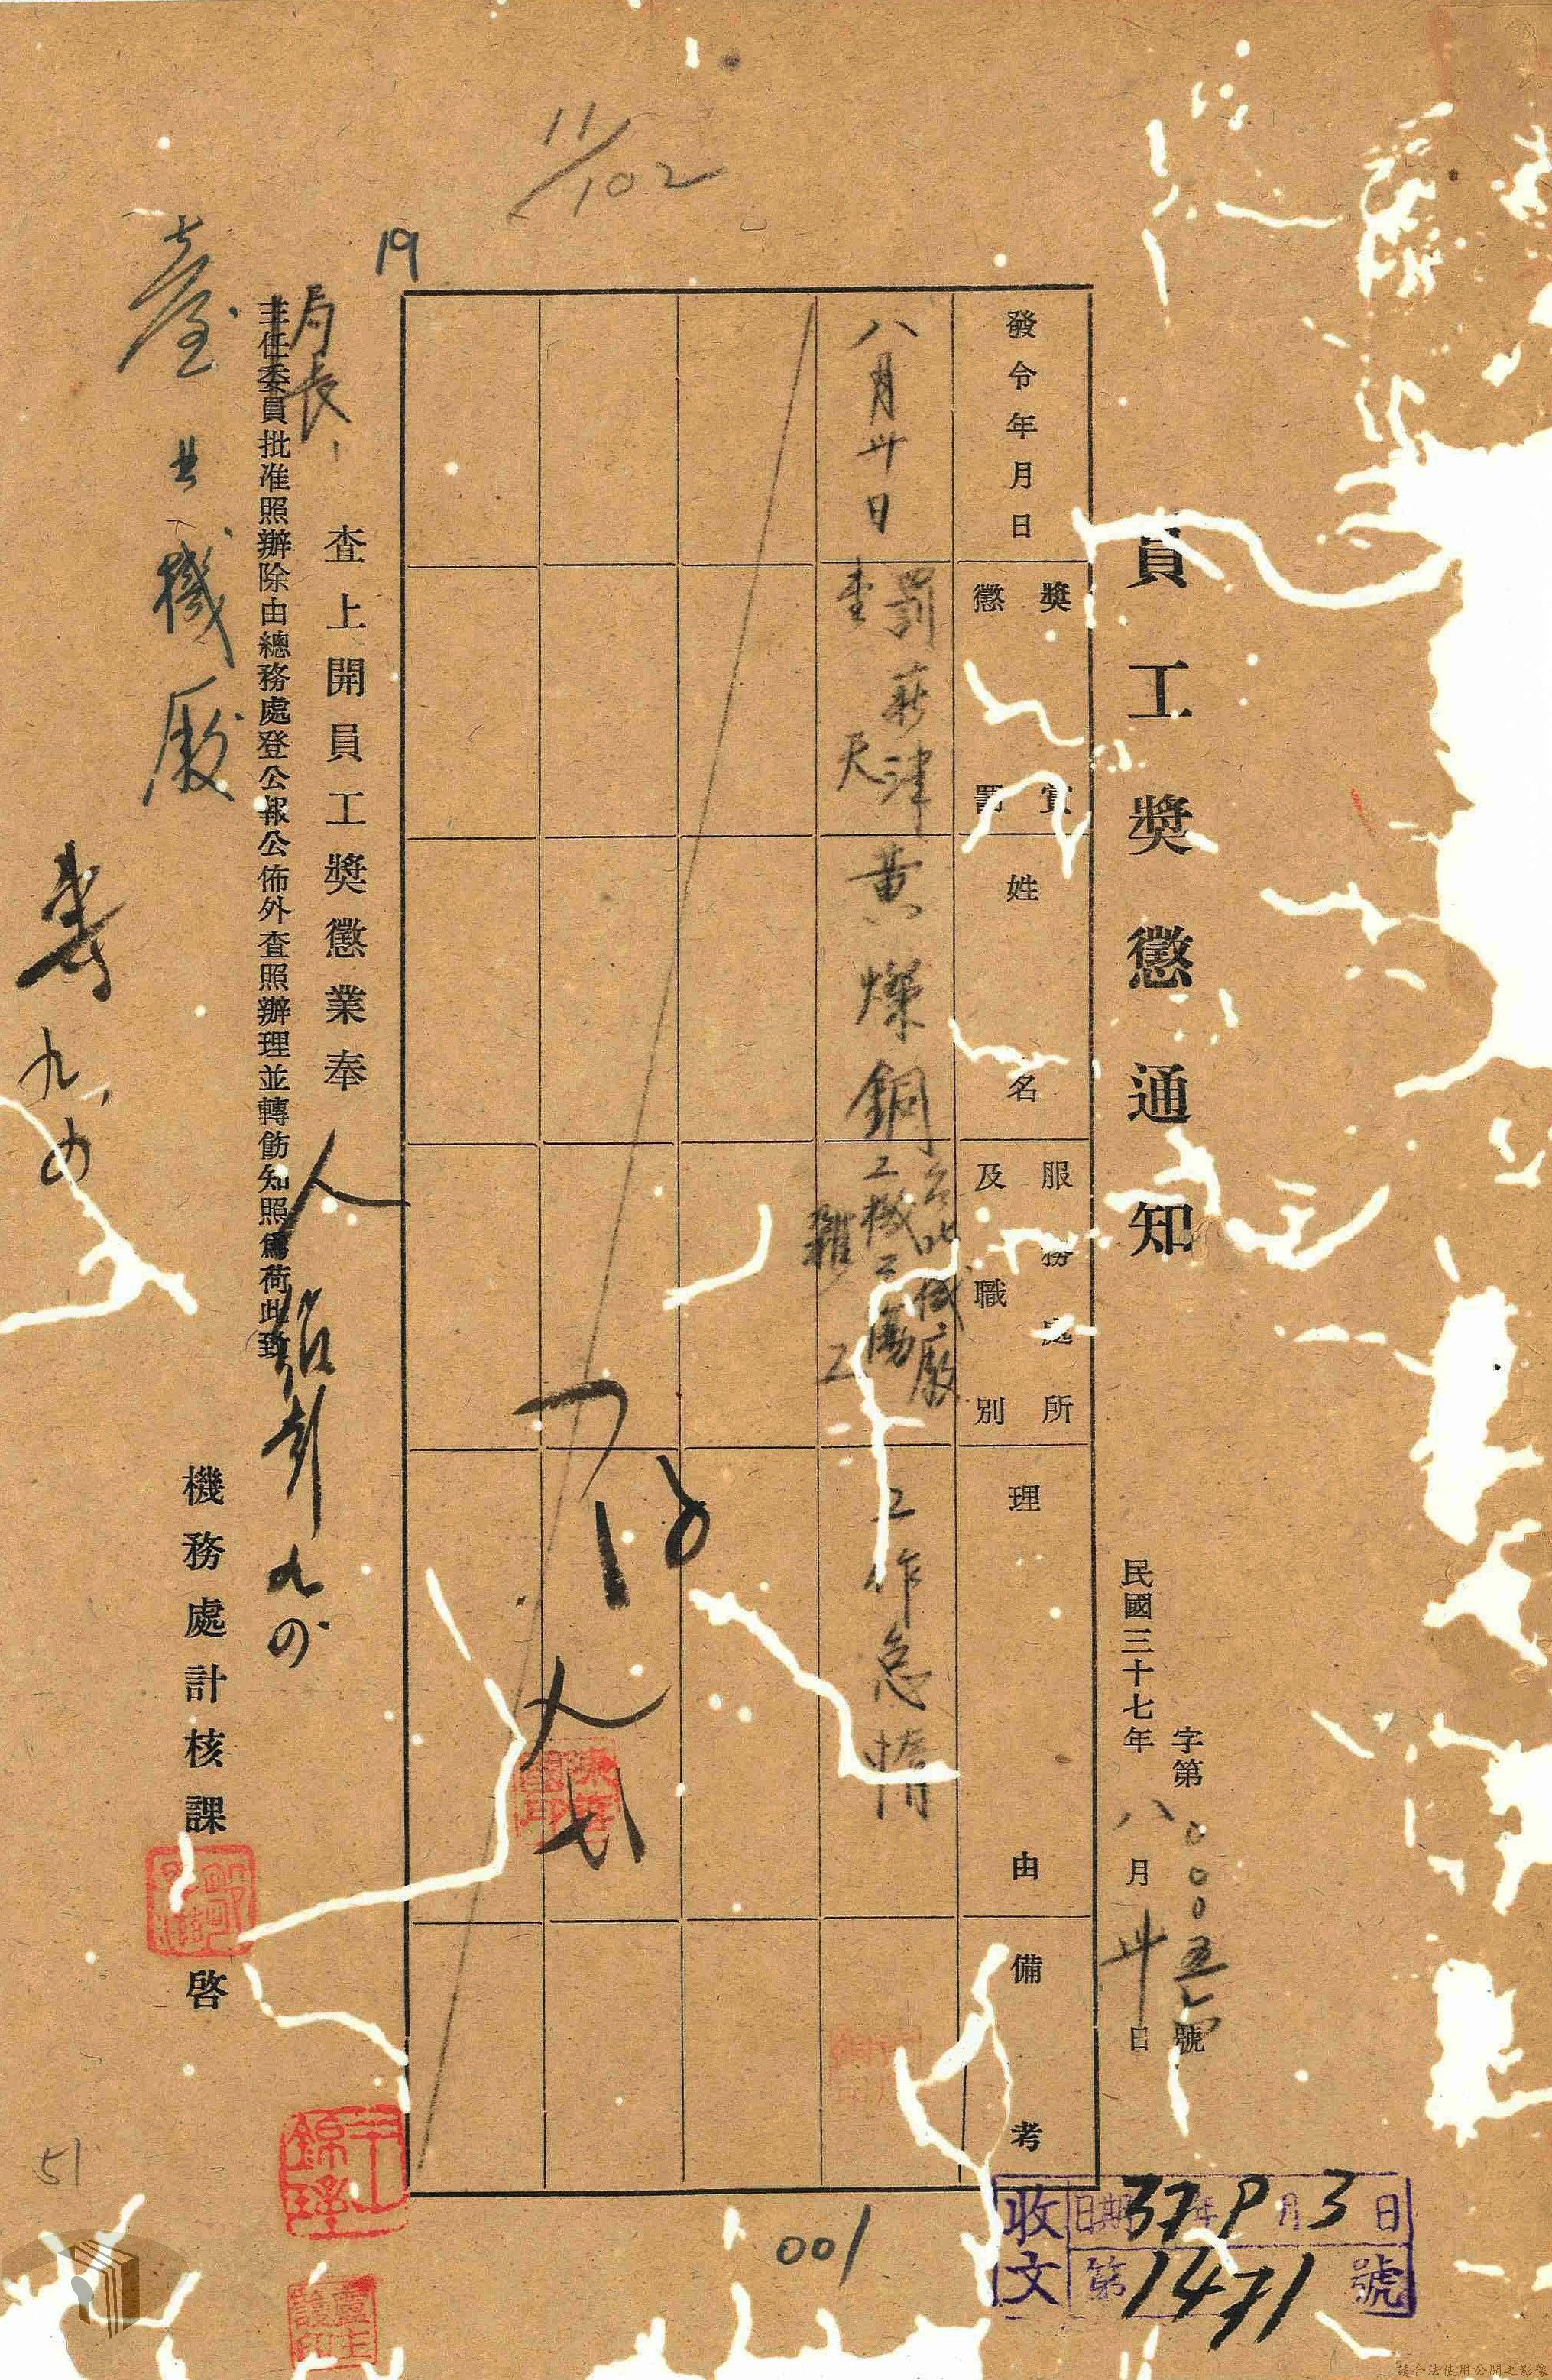 11/102
19
員工獎懲通知
字第〇〇〇五一四號
民國三十七年八月卅日
發令年月日
獎賞
懲罰
姓名
服務處所
及職別
理由
備考
八月廿日
罰薪津
壹天
黃燦銅
台北機廠
工機工場
雜工
工作怠惰
查上開員工獎懲業奉
局長
主任委員批准照辦除由總務處登公報公佈外查照辦理並轉飭知照為荷此致
臺北機廠
機務處計核課 啓
九、四
九、四
51
001
收文 日期37年9月3日
第1471號
請合法使用公開之影像